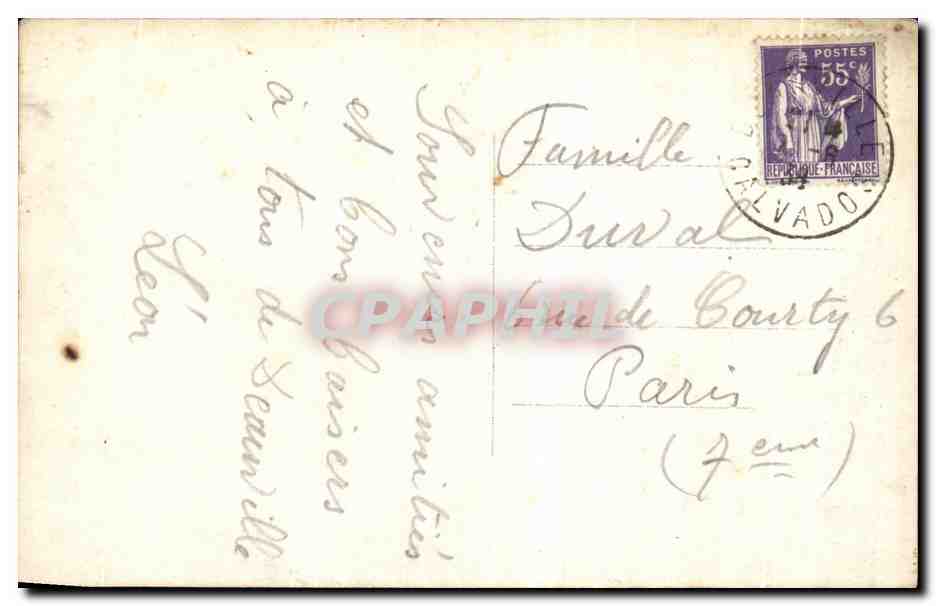 Souvenirs amitiés
et bons baisers
à tous de Deauville
Léon
Famille
Duval
rue de Courty 6
Paris
(7eme)
POSTES
55c
REPUBLIQUE-FRANÇAISE
CALVADOS
CPAPHIL